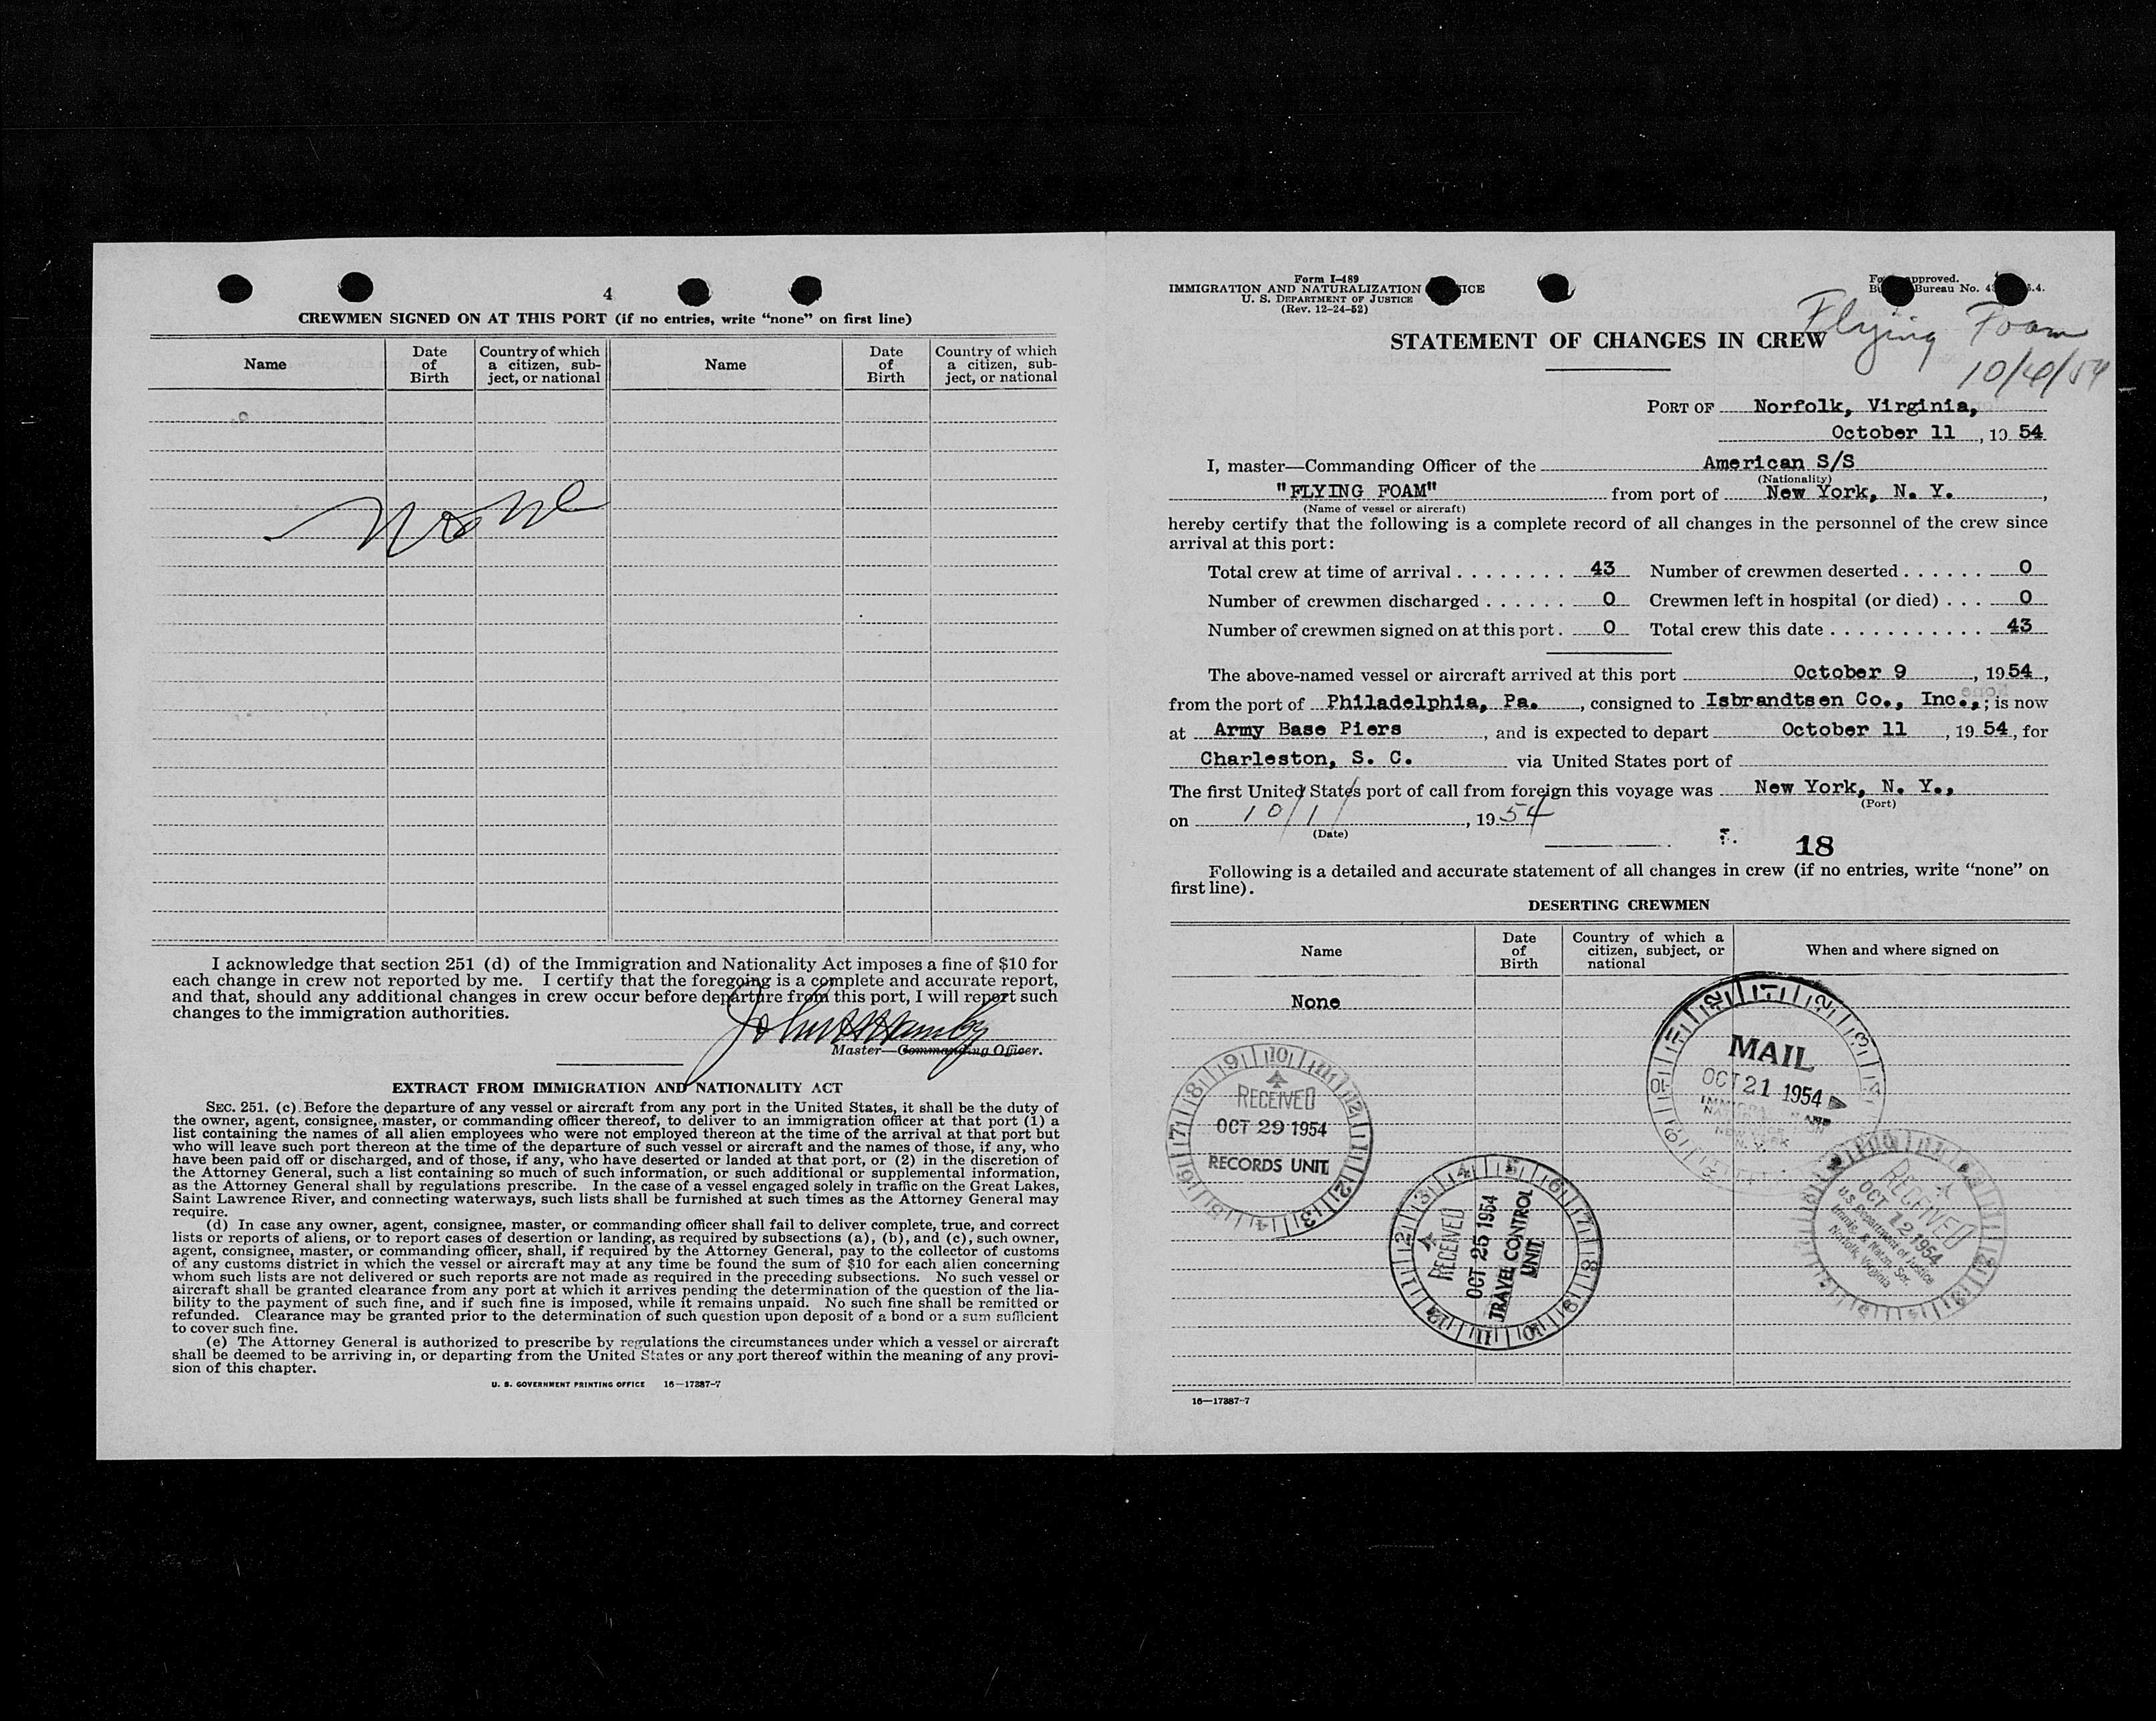 4
CREWMEN SIGNED ON AT THIS PORT (if no entries, write “none” on first line)
Name
Date of Birth
Country of which a citizen, subject, or national
Name
Date of Birth
Country of which a citizen, subject, or national
None
I acknowledge that section 251 (d) of the Immigration and Nationality Act imposes a fine of $10 for
each change in crew not reported by me. I certify that the foregoing is a complete and accurate report,
and that, should any additional changes in crew occur before departure from this port, I will report such
changes to the immigration authorities.
Master—Commanding Officer.
EXTRACT FROM IMMIGRATION AND NATIONALITY ACT
SEC. 251. (c) Before the departure of any vessel or aircraft from any port in the United States, it shall be the duty of
the owner, agent, consignee, master, or commanding officer thereof, to deliver to an immigration officer at that port (1) a
list containing the names of all alien employees who were not employed thereon at the time of the arrival at that port but
who will leave such port thereon at the time of the departure of such vessel or aircraft and the names of those, if any, who
have been paid off or discharged, and of those, if any, who have deserted or landed at that port, or (2) in the discretion of
the Attorney General, such a list containing so much of such information, or such additional or supplemental information,
as the Attorney General shall by regulations prescribe. In the case of a vessel engaged solely in traffic on the Great Lakes,
Saint Lawrence River, and connecting waterways, such lists shall be furnished at such times as the Attorney General may
require.
(d) In case any owner, agent, consignee, master, or commanding officer shall fail to deliver complete, true, and correct
lists or reports of aliens, or to report cases of desertion or landing, as required by subsections (a), (b), and (c), such owner,
agent, consignee, master, or commanding officer, shall, if required by the Attorney General, pay to the collector of customs
of any customs district in which the vessel or aircraft may at any time be found the sum of $10 for each alien concerning
whom such lists are not delivered or such reports are not made as required in the preceding subsections. No such vessel or
aircraft shall be granted clearance from any port at which it arrives pending the determination of the question of the lia-
bility to the payment of such fine, and if such fine is imposed, while it remains unpaid. No such fine shall be remitted or
refunded. Clearance may be granted prior to the determination of such question upon deposit of a bond or a sum sufficient
to cover such fine.
(e) The Attorney General is authorized to prescribe by regulations the circumstances under which a vessel or aircraft
shall be deemed to be arriving in, or departing from the United States or any port thereof within the meaning of any provi-
sion of this chapter.
U. S. GOVERNMENT PRINTING OFFICE 16—17387-7
Form I-489
IMMIGRATION AND NATURALIZATION
U. S. DEPARTMENT OF JUSTICE
(Rev. 12-24-52)
approved.
Bureau No.
Flying Foam
STATEMENT OF CHANGES IN CREW
PORT OF Norfolk, Virginia,
October 11, 1954
I, master—Commanding Officer of the American S/S
(Nationality)
"FLYING FOAM" from port of New York, N. Y.,
(Name of vessel or aircraft)
hereby certify that the following is a complete record of all changes in the personnel of the crew since
arrival at this port:
Total crew at time of arrival 43 Number of crewmen deserted 0
Number of crewmen discharged 0 Crewmen left in hospital (or died) 0
Number of crewmen signed on at this port 0 Total crew this date 43
The above-named vessel or aircraft arrived at this port October 9, 1954,
from the port of Philadelphia, Pa., consigned to Isbrandtsen Co., Inc.,; is now
at Army Base Piers, and is expected to depart October 11, 1954, for
Charleston, S. C. via United States port of
The first United States port of call from foreign this voyage was New York, N. Y.,
(Port)
on 10/1/, 1954
(Date)
18
Following is a detailed and accurate statement of all changes in crew (if no entries, write “none” on
first line).
DESERTING CREWMEN
Name
Date of Birth
Country of which a citizen, subject, or national
When and where signed on
None
MAIL
OCT 21 1954
RECEIVED
OCT 29 1954
RECORDS UNIT
RECEIVED
OCT 25 1954
TRAVEL CONTROL
UNIT
RECEIVED
OCT 12 1954
U.S. Department of Justice
Immig. & Natzn. Ser.
Norfolk, Virginia
16—17387-7